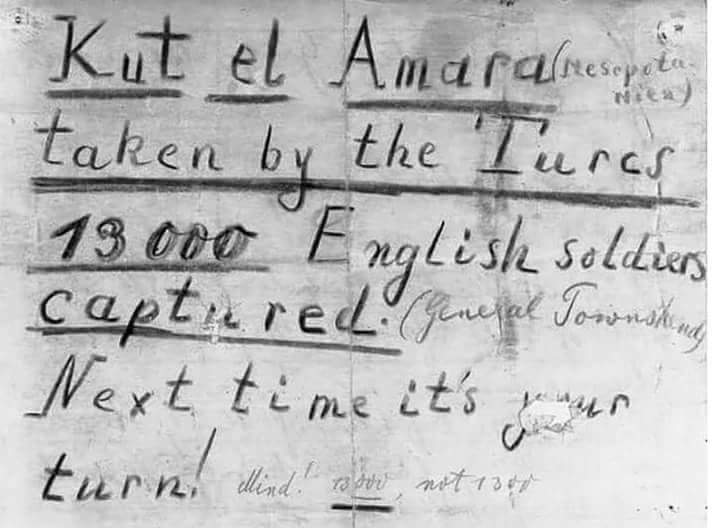 Kut el Amara (Mesopota-
mien)
taken by the Turcs
13 000 English soldiers
captured. (General Townshend)
Next time it's your
turn! Mind! 13000, not 1300